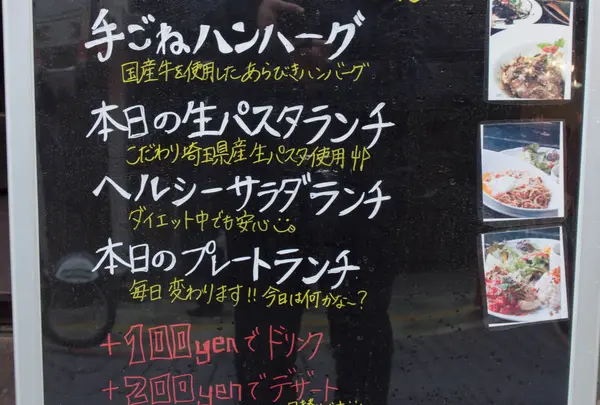 手ごねハンハーグ
国産牛を使用したあらびきハンバーグ
本日の生パスタランチ
こだわり埼玉県産生パスタ使用
ヘルシーサラダランチ
ダイエット中でも安心
本日のプレートランチ
毎日変わります!!今日は何かな〜?
+100yenでドリンク
+200yenでデザート